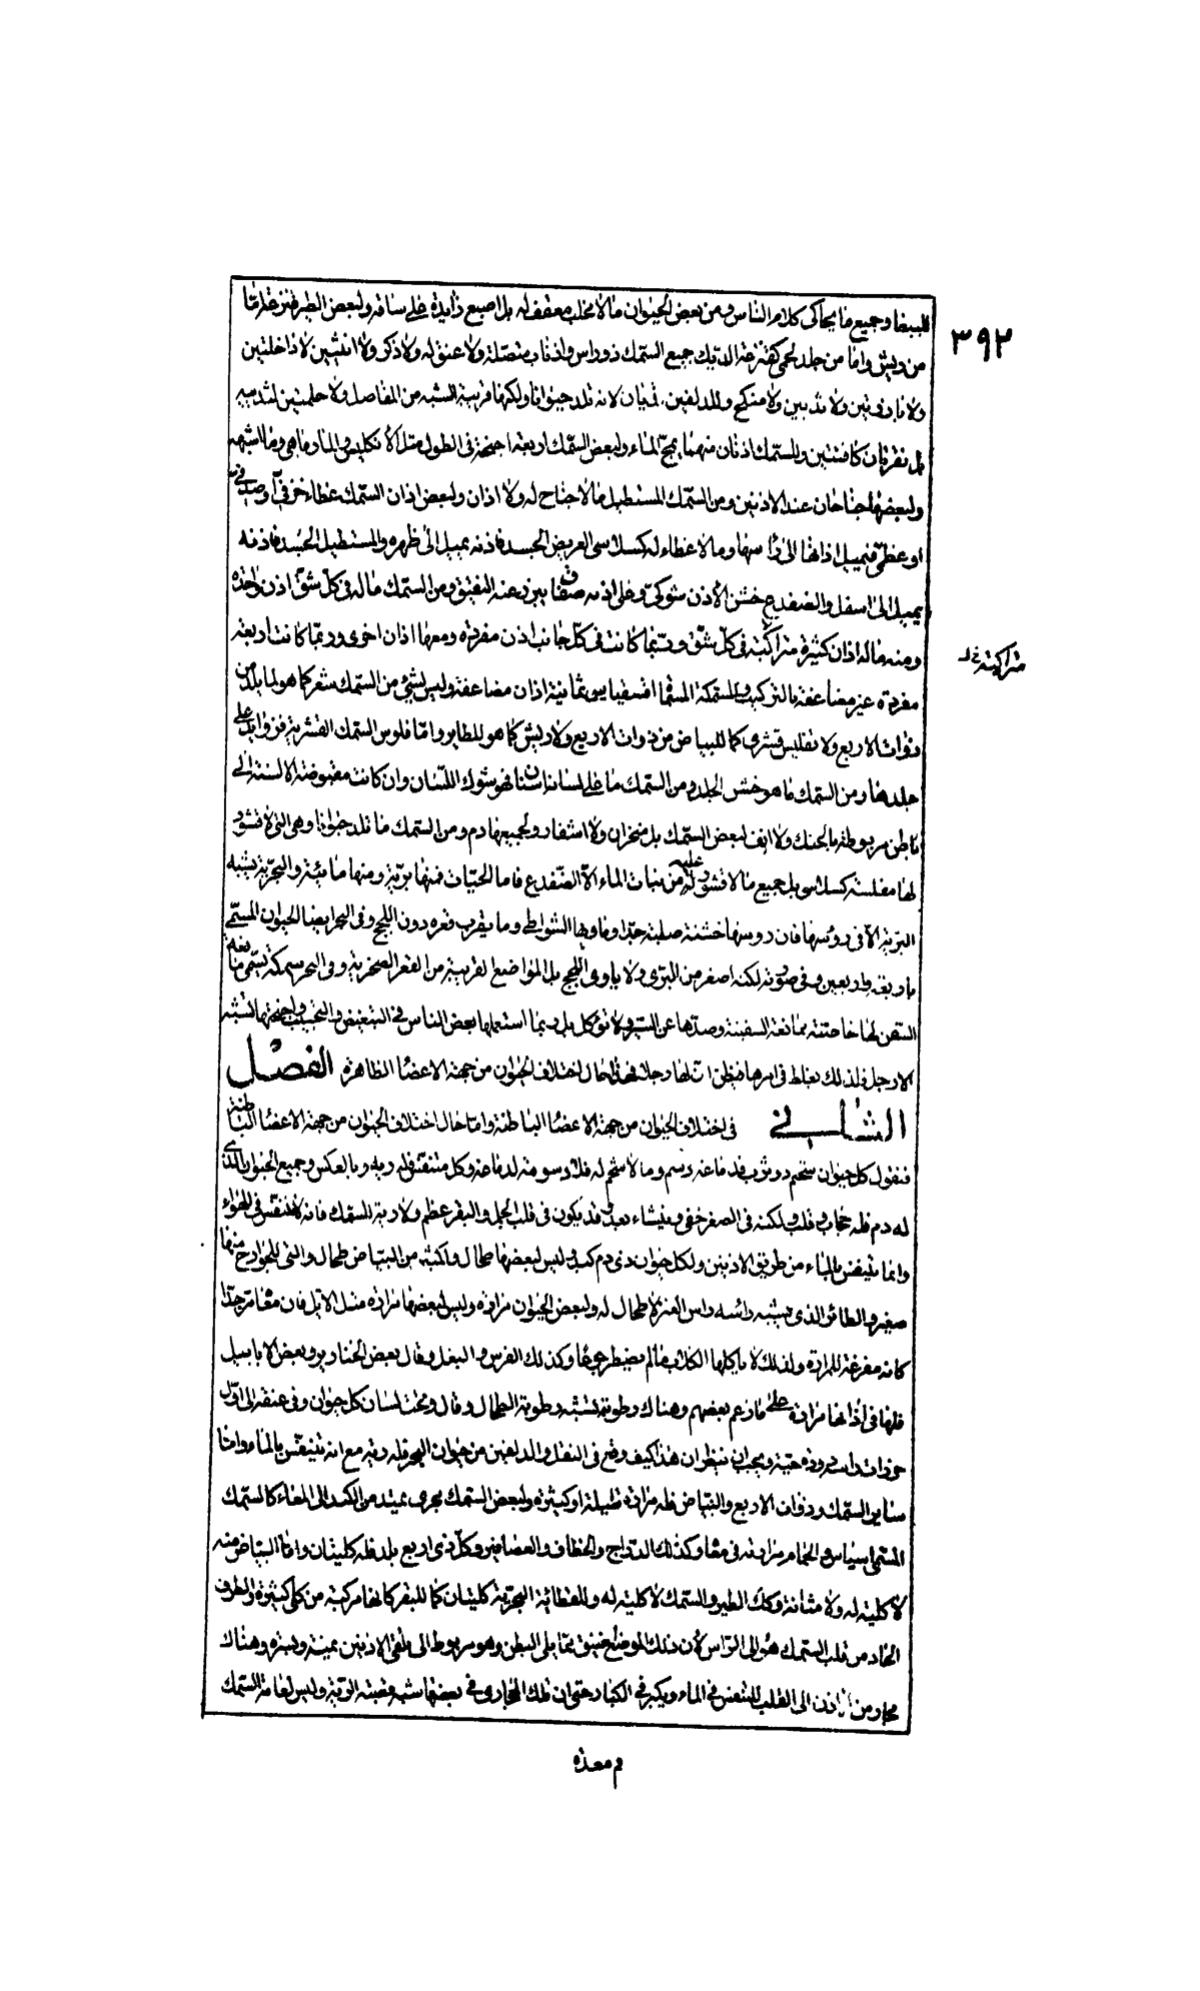 كالببغا وجميع ما يحاكى كلام الناس ومن بعض الحيوان ما لا مخلب معقف له بل اصبع زايدة على ساقه ولبعض الطير قنزعة اما
٣٩٢
من ريش واما من جلد لحمى كقنزعة الديك جميع السمك ذو راس واذناب متصلة ولا عنق له ولا ذكر ولا انثيين لا داخلتين
ولا بارزتين ولا ثديين ولا منكح وللدلفين ثديان لانه تلد حيوانا ولكنها قريبة الشبه من المفاصل ولا حلمتين لثدييه
بل نقرتان كامنتين وللسمك اذنان منهما يمج الماء ولبعض السمك اربعة اجنحة فى الطول مثل الانكليس والمارماهى وما اشبهه
ولبعضها جناحان عند الاذنين ومن السمك المستطيل ما لا جناح له ولا اذان ولبعض اذان السمك غطاء خزفى او صدفى
او عظمى فتميل اذانها الى راسها وما لا غطاء له كسلاسى العريض الجسد فاذنه يميل الى ظهره والمستطيل الجسد فاذنه
يميل الى اسفل والضفدع خشن الاذن شوكى وعلى اذنه صفاق يبرز عند النقيق ومن السمك ماله فى كل شق اذن واحدة
ومنه ماله اذان كثيرة متراكبة فى كل شق وربما كانت فى كل جانب اذن مفردة ومعها اذان اخرى وربما كانت اربعة
متراكمة خ ل
مفردة غير مضاعفة بالتركيب وللسمكة المسماة اقسفياس ثمانية اذان مضاعفة وليس لشئ من السمك شعر كما هو لما يلد من
ذوات الاربع ولا تفليس قشرى كما للبياض من ذوات الاربع ولا ريش كما هو للطاير واما فلوس السمك القشرية فزوايد على
جلدها ومن السمك ما هو خشن الجلد ومن السمك ما على لسانه اسنان فهو شوك اللسان وان كانت مقبوضة الالسنة الى
باطن مربوطة بالحنك ولا انف لبعض السمك بل منخران ولا اشفار ولجميعها دم ومن السمك ما تلد حيوانا وهى التى لا قشور
لها مفلسة كسلاسى بل جميع ما لا قشور عليه من نبات الماء الا الضفدع فاما الحيات فمنها برية ومنها مائية والبحرية يشبه
البرية الا فى رؤسها فان رؤسها خشنة صلبة جدا وماويها الشواطى وما يقرب قعره دون اللج وفى البحر ايضا الحيوان المسمى
باربعة واربعين وفى صورته لكنه اصغر من البرى ولا ياوى اللج بل المواضع القريبة من القعر الصخرية وفى البحر سمكة تسمى مانعة
السفن لها خاصة بممانعة السفينة وصدها عن السير ولا تؤكل بل ربما استعملها بعض الناس فى التبغيض والتحبيب واجنحتها تشبه
الارجل ولذلك يغلط فى امرها فيظن ان لها رجلا فهذا حال اختلاف الحيوان من جهة الاعضا الظاهرة الفصل
الثانى فى اختلاف الحيوان من جهة الاعضا الباطنة واما حال اختلاف الحيوان من جهة الاعضا الباطنة
فنقول كل حيوان شحيم ذو ثرب فدماغه دسم وما لا شحم له فلا دسومة لدماغه وكل متنفس فله ريه وبالعكس وجميع الحيوان الذى
له دم فله حجاب وقلب ولكنه فى الصغر خفى وغشاء دماغ وقد يكون فى قلب الجمل والبقر عظم ولا رية للسمك فانه لا يتنفس فى الهواء
وانما يتنفس بالماء من طريق الاذنين ولكل حيوان ذى دم كبد وليس لبعضها طحال ولاكثر من البياض طحال والتى للجوارح منها
صغير والطائر الذى يشبه رائسه راس العنز لا طحال له ولبعض الحيوان مرارة وليس لبعضها مرارة مثل الايل فان معاه مر جدا
كانه مفرغة للمرارة ولذلك لا ياكلها الكلاب ما لم يضطر جوعا وكذلك الفرس والبغل وقال بعض الخنازير وبعض الايابيل
فلها فى اذانها مرارة على ما زعم بعضهم وهناك رطوبة تشبه رطوبة الطحال وقال وتحت لسان كل حيوان وفى عنقه الى اول
خرزات راسه دودة حية ويجب ان ينظر ان هذا كيف وقع فى النقل والدلفين من حيوان البحر فله رية مع انه يتنفس بالماء واما
ساير السمك وذوات الاربع والبياض فله مرارة قليلة او كثيرة ولبعض السمك مجرى يمتد من الكبد الى المعاء كالسمك
المسمى اسياس والحمام مرارته فى معاه وكذلك الدراج والخطاف والعصافير وكل ذى اربع يلد فله كليتان واما البياض منه
لا كلية له ولا مثانة وكك الطير والسمك لا كلية له وللعظائية البحرية كليتان كما للبقر كانها مركبة من كلى كثيرة والطرف
الحاد من قلب السمك هو الى الراس لان ذلك الموضع ضيق مما يلى البطن وهو مربوط الى ملتقى الاذنين يمينة ويسرة وهناك
مجار من الاذن الى القلب للتنفس فى الماء ويكبر فى الكبار حتى ان تلك المجارى فى بعضها شبه قصبة الرية وليس لعامة السمك
م معدة